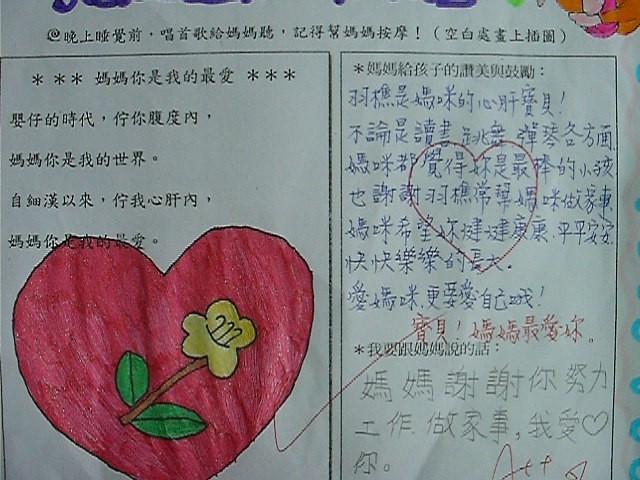 @晚上睡覺前，唱首歌給媽媽聽，記得幫媽媽按摩！（空白處畫上插圖）
＊＊＊ 媽媽你是我的最愛 ＊＊＊
嬰仔的時代，佇你腹度內，
媽媽你是我的世界。
自細漢以來，佇我心肝內，
媽媽你是我的最愛。
＊媽媽給孩子的讚美與鼓勵：
羽樵是媽咪的心肝寶貝！
不論是讀書、跳舞、彈琴各方面
媽咪都覺得妳是最棒的小孩
也謝謝羽樵常幫媽咪做家事
媽咪希望妳健健康康、平平安安、
快快樂樂的長大。
愛媽咪、更要愛自己哦！
寶貝！媽媽最愛妳。
＊我要跟媽媽說的話：
媽媽謝謝你努力
工作、做家事，我愛♡
你。
A++